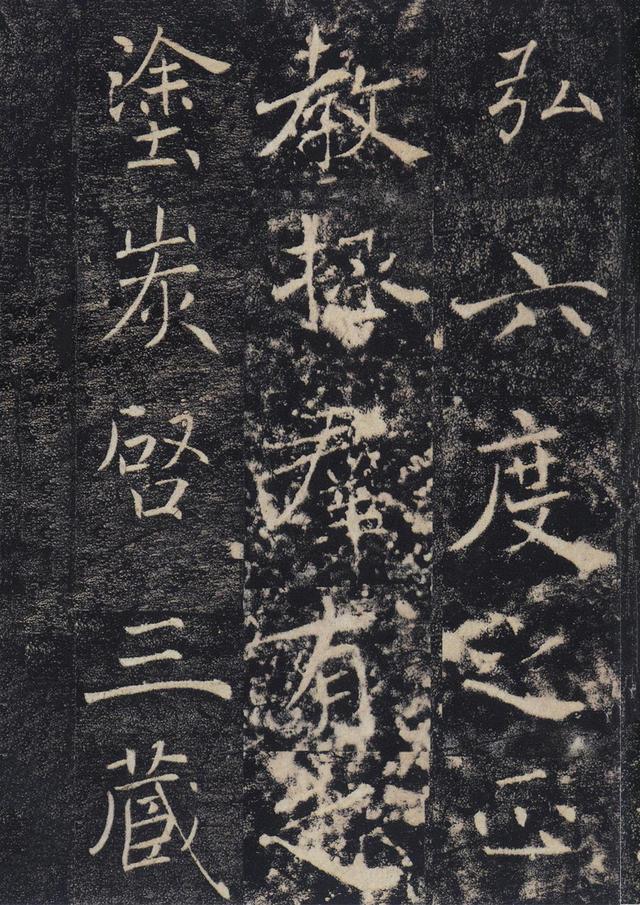 弘六度之正
教拯群有之
塗炭啓三藏